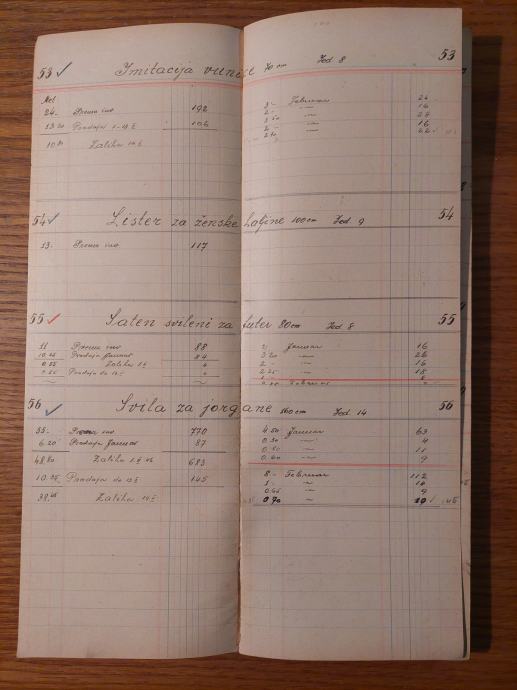 53 ✓ Imitacija vunice 70 cm Jed 8 53
Met
24.- Prema inv 192
13.20 Prodaja 1-13 II 106
10.80 Zaliha 14 II
3.- Februar 24
2.- 〃 16
3.50 〃 28
2.- 〃 16
54 ✓ Lister za ženske haljine 100 cm Jed. 9 54
13.- Prema inv 117
55 ✓ Saten svileni za futer 80 cm Jed 8 55
11 Prema inv 88
10.45 Prodaja Januar 84
0.55 Zaliha 1 II 4
0.55 Prodaja do 13 II
2.- Januar 16
3.20 〃 26
2.- 〃 16
2.25 〃 18
Februar
56 ✓ Svila za jorgane 160 cm Jed 14 56
55.- Prema inv 770
6.20 Prodaja Januar 87
48.80 Zaliha 1 II 683
10.35 Prodaja do 13 II 145
38.45 Zaliha 14 II
4.50 Januar 63
0.30 〃 4
0.80 〃 11
0.60 〃 9
8.- Februar 112
1.- 〃 14
0.65 〃 9
0.70 〃 10 145